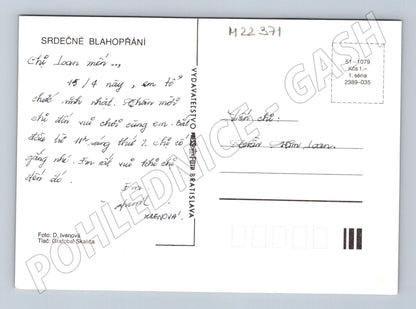 M22371
SRDEČNÉ BLAHOPŘÁNÍ
Chị Loan mến..,
15/4 này, em tổ
chức sinh nhật.
chị đến vui chơi cùng em. Bắt
đầu từ 11h sáng thứ 7. Chị cố
gắng nhé. Em rất vui khi chị
đến đó.
Em
KAENOVA!
Foto: D. Ivanova
Tlač: Grafobal Skalica
VYDAVATEĽSTVO BRATISLAVA
51-1079
Kčs 1,-
1. séria
2389-035
chị:
Loan
POHLEDNICE - GASH